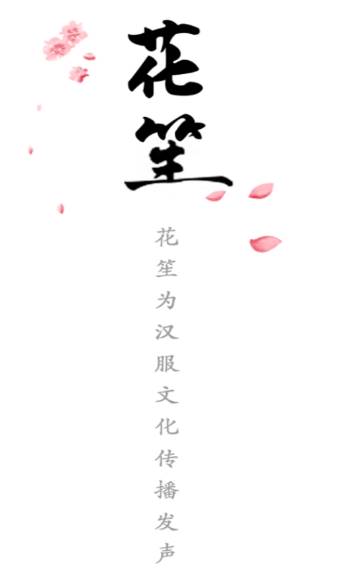 花笙
花笙为汉服文化传播发声